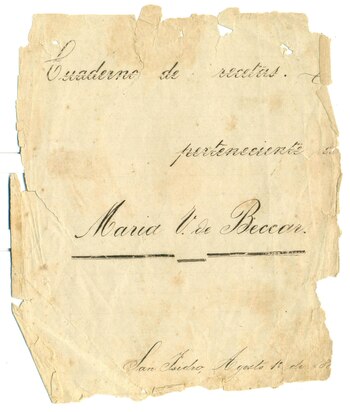 Cuaderno de recetas.
perteneciente a
Maria V. de Beccar.
San Isidro, Agosto 1º de